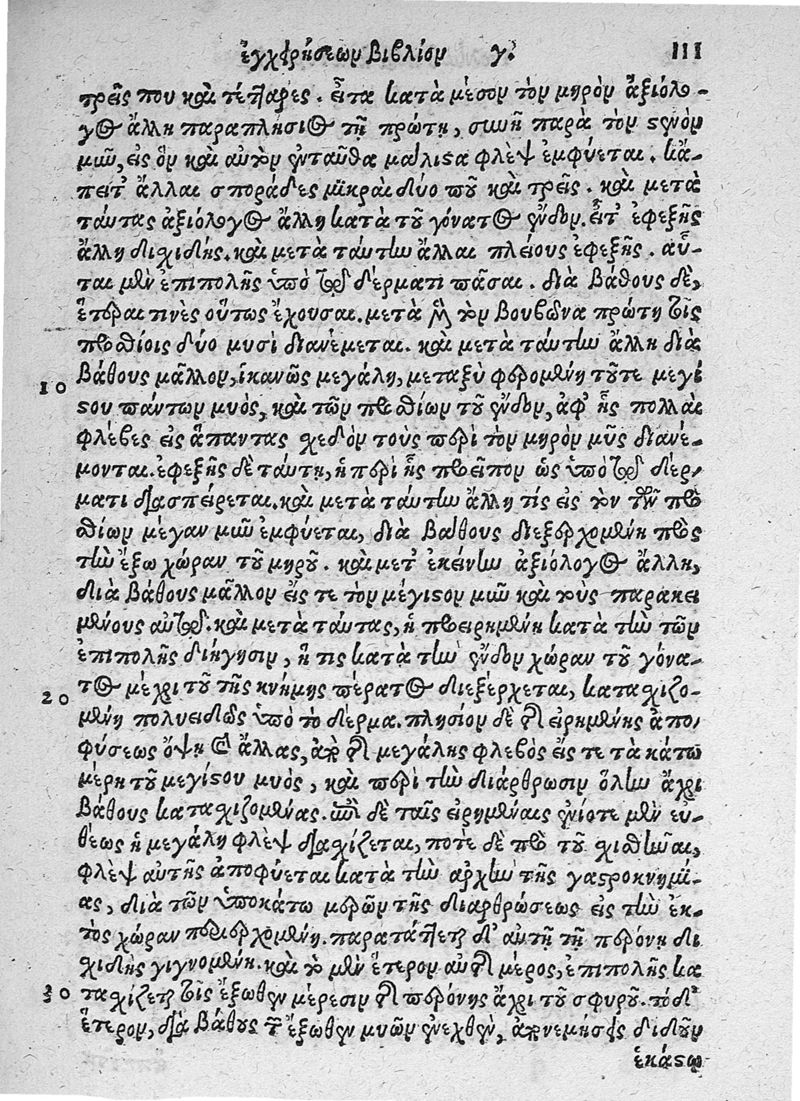 ἐγχειρήσεων βιβλίον γ. 111
τρεῖς που καὶ τέτταρες. εἶτα κατὰ μέσον τὸν μηρὸν ἀξιόλο-
γος ἄλλη παραπλήσιος τῇ πρώτῃ, συνῆ παρὰ τὸν στενὸν
μῦν, εἰς ὃν καὶ αὐτὸν ἐνταῦθα μάλιστα φλὲψ ἐμφύεται. κἄ-
πειτ' ἄλλαι σποράδες μικραὶ δύο που καὶ τρεῖς. καὶ μετὰ
ταύτας ἀξιόλογος ἄλλη κατὰ τοῦ γόνατος ἔνδον. εἶτ' ἐφεξῆς
ἄλλη διχιδὴς. καὶ μετὰ ταύτην ἄλλαι πλείους ἐφεξῆς. αὗ-
ται μὲν ἐπιπολῆς ὑπὸ τῷ δέρματι πᾶσαι. διὰ βάθους δὲ,
ἕτεραι τινὲς οὕτως ἔχουσαι. μετὰ γὰρ τὸν βουβῶνα πρώτη τοῖς
προσθίοις δύο μυσὶ διανέμεται. καὶ μετὰ ταύτην ἄλλη διὰ
10 βάθους μᾶλλον, ἱκανῶς μεγάλη, μεταξὺ φερομένη τοῦτε μεγί
στου πάντων μυὸς, καὶ τῶν προσθίων τοῦ ἔνδον, ἀφ' ἧς πολλαὶ
φλέβες εἰς ἅπαντας σχεδὸν τοὺς περὶ τὸν μηρὸν μῦς διανέ-
μονται. ἐφεξῆς δὲ ταύτῃ, ἡ περὶ ἧς προεῖπον ὡς ὑπὸ τῷ δέρ-
ματι διασπείρεται. καὶ μετὰ ταύτην ἄλλη τίς εἰς τὸν τῶν προ
σθίων μέγαν μῦν ἐμφύεται, διὰ βάθους διεξερχομένη πρὸς
τὴν ἔξω χώραν τοῦ μηροῦ. καὶ μετ' ἐκείνην ἀξιόλογος ἄλλη,
διὰ βάθους μᾶλλον εἴς τε τὸν μέγιστον μῦν καὶ τοὺς παρακει
μένους αὐτῷ. καὶ μετὰ ταύτας, ἡ προειρημένη κατὰ τὴν τῶν
ἐπιπολῆς διήγησιν, ἥ τις κατὰ τὴν ἔνδον χώραν τοῦ γόνα-
20 τος μέχρι τοῦ τῆς κνήμης πέρατος διεξέρχεται, κατασχιζο-
μένη πολυειδῶς ὑπὸ τὸ δέρμα. πλησίον δὲ τῆς εἰρημένης ἀπο-
φύσεως ὄψη καὶ ἄλλας, ἀπὸ τῆς μεγάλης φλεβὸς εἴς τε τὰ κάτω
μέρη τοῦ μεγίστου μυὸς, καὶ περὶ τὴν διάρθρωσιν ὅλην ἄχρι
βάθους κατασχιζομένας. ἐπὶ δὲ ταῖς εἰρημέναις ἐνίοτε μὲν εὐ-
θέως ἡ μεγάλη φλὲψ διασχίζεται, ποτὲ δὲ πρὸ τοῦ σχισθῆναι,
φλὲψ αὐτῆς ἀποφύεται κατὰ τὴν ἀρχὴν τῆς γαστροκνημί-
ας, διὰ τῶν ὑποκάτω μερῶν τῆς διαρθρώσεως εἰς τὴν ἐκ-
τὸς χώραν περιερχομένη. παρατάττεται δ' αὐτῇ τῇ περόνῃ δι
χιδὴς γιγνομένη. καὶ τὸ μὲν ἕτερον αὐτῆς μέρος, ἐπιπολῆς κα
30 τασχίζεται τοῖς ἔξωθεν μέρεσιν τῆς περόνης ἄχρι τοῦ σφυροῦ. τὸ δ'
ἕτερον, διὰ βάθους τῶν ἔξωθεν μυῶν ἐνεχθὲν, ἀπονεμήσεις διδοῦν
ἑκάστῳ